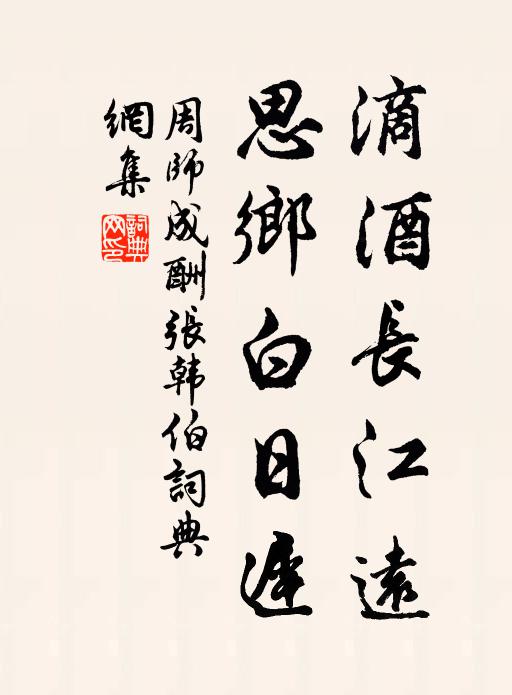 滴酒長江遠
思鄉白日遲
周師成酬張韓伯詞典
網集
詞典
网印